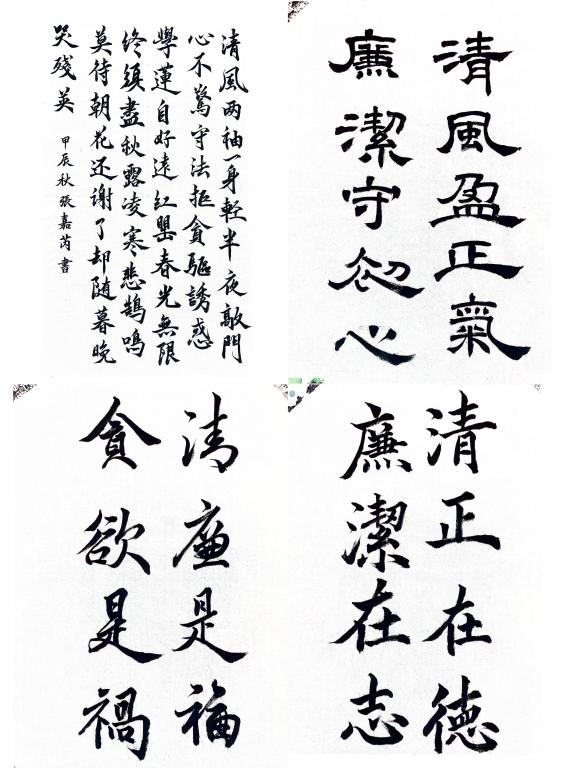 清風两袖一身輕半夜敲門
心不驚守法拒貪驅誘惑
學蓮自好遠紅罌春光無限
終須盡秋露凌寒悲鵠鳴
莫待朝花还謝了却随暮晚
哭殘英
甲辰秋張嘉芮書
清風盈正氣
廉潔守初心
清廉是福
貪欲是禍
清正在德
廉潔在志